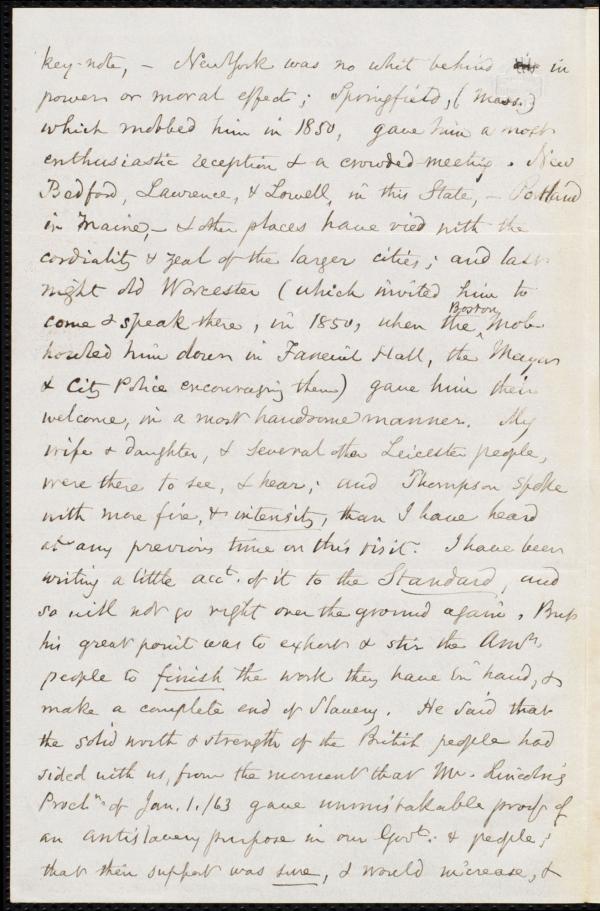 key-note, – New York was no whit behind in
power or moral effect; Springfield, (Mass.)
which mobbed him in 1850, gave him a most
enthusiastic reception & a crowded meeting. New
Bedford, Lawrence, & Lowell, in this State, – Portland
in Maine, – & other places have vied with the
cordiality & zeal of the larger cities; and last
night old Worcester (which invited him to
come & speak there, in 1850, when the Boston Mob
howled him down in Faneuil Hall, the Mayor
& City Police encouraging them) gave him their
welcome, in a most handsome manner. My
wife & daughter, & several other Leicester people,
were there to see, & hear; and Thompson spoke
with more fire, & intensity, than I have heard
at any previous time on this visit. I have been
writing a little acct. of it to the Standard, and
so will not go right over the ground again. But
his great point was to exhort & stir the Amn.
people to finish the work they have in hand, &
make a complete end of Slavery. He said that
the solid worth & strength of the British people had
sided with us, from the moment that Mr. Lincoln's
Procln. of Jan. 1. /63 gave unmistakable proof of
an antislavery purpose in our Govt. & people;
that their support was sure, & would increase, &